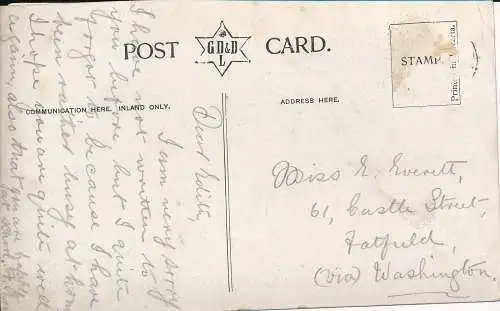 POST CARD.
G D & D
L
STAMP.
Printed in Bavaria.
COMMUNICATION HERE. INLAND ONLY.
ADDRESS HERE.
Dear Edith,
I am very sorry
I have not written to
you before but I quite
forgot to because I have
been rather busy at home
I hope you are quite well
again, also that
Miss E. Everett,
61, Castle Street,
Fatfield,
(via) Washington.